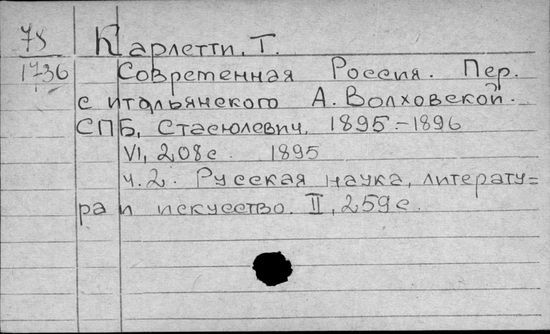 78 Карлетти, Т.
1736 Современная Россия. Пер.
с итальянского А. Волховской.
СПБ, Стасюлевич, 1895.-1896
VI, 208с. 1895
ч.2. Русская наука, литерату=
ра и искусство. II, 259с.